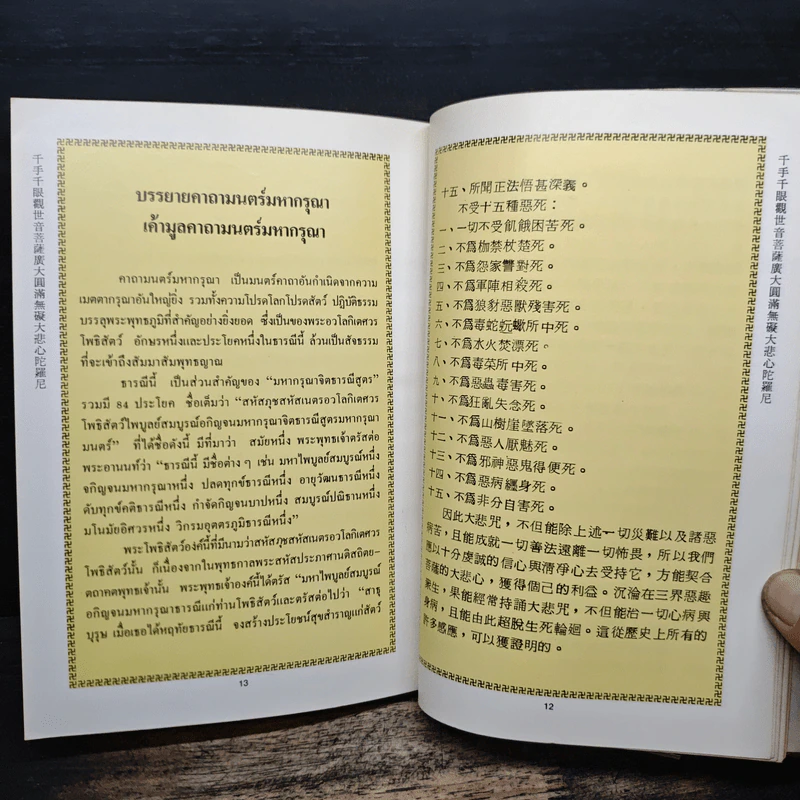 千手千眼觀世音菩薩廣大圓滿無礙大悲心陀羅尼
บรรยายคาถามนตร์มหากรุณา
เค้ามูลคาถามนตร์มหากรุณา
คาถามนตร์มหากรุณา เป็นมนตร์คาถาอันกำเนิดจากความ
เมตตากรุณาอันใหญ่ยิ่ง รวมทั้งความโปรดโลกโปรดสัตว์ ปฏิบัติธรรม
บรรลุพระพุทธภูมิที่สำคัญอย่างยิ่งยอด ซึ่งเป็นของพระอวโลกิเตศวร
โพธิสัตว์ อักษรหนึ่งและประโยคหนึ่งในธารณีนี้ ล้วนเป็นสัจธรรม
ที่จะเข้าถึงสัมมาสัมพุทธญาณ
ธารณีนี้ เป็นส่วนสำคัญของ “มหากรุณาจิตธารณีสูตร”
รวมมี 84 ประโยค ชื่อเต็มว่า “สหัสภุชสหัสเนตรอวโลกิเตศวร
โพธิสัตว์ไพบูลย์สมบูรณ์อกิญจนมหากรุณาจิตธารณีสูตรมหากรุณา
มนตร์” ที่ได้ชื่อดังนี้ มีที่มาว่า สมัยหนึ่ง พระพุทธเจ้าตรัสต่อ
พระอานนท์ว่า “ธารณีนี้ มีชื่อต่าง ๆ เช่น มหาไพบูลย์สมบูรณ์หนึ่ง
อกิญจนมหากรุณาหนึ่ง ปลดทุกข์ธารณีหนึ่ง อายุวัฒนธารณีหนึ่ง
ดับทุกข์คติธารณีหนึ่ง กำจัดกิญจนบาปหนึ่ง สมบูรณ์ปณิธานหนึ่ง
มโนมัยอิศวรหนึ่ง วิกรมอุตตรภูมิธารณีหนึ่ง”
พระโพธิสัตว์องค์นี้ที่มีนามว่าสหัสภุชสหัสเนตรอวโลกิเตศวร
โพธิสัตว์นั้น ก็เนื่องจากในพุทธกาลพระสหัสประภาศานติสถิตย-
ตถาคตพุทธเจ้านั้น พระพุทธเจ้าองค์นี้ได้ตรัส “มหาไพบูลย์สมบูรณ์
อกิญจนมหากรุณาธารณีแก่ท่านโพธิสัตว์และตรัสต่อไปว่า “สาธุ
บุรุษ เมื่อเธอได้หฤทัยธารณีนี้ จงสร้างประโยชน์สุขสำราญแก่สัตว์
13
十五、所聞正法悟甚深義。
不受十五種惡死：
一、一切不受飢餓困苦死。
二、不爲枷禁杖楚死。
三、不爲怨家讐對死。
四、不爲軍陣相殺死。
五、不爲狼豺惡獸殘害死。
六、不爲毒蛇蚖蠍所中死。
七、不爲水火焚漂死。
八、不爲毒菜所中死。
九、不爲惡蟲毒害死。
十、不爲狂亂失念死。
十一、不爲山樹崖墜落死。
十二、不爲惡人厭魅死。
十三、不爲邪神惡鬼得便死。
十四、不爲惡病纏身死。
十五、不爲非分自害死。
因此大悲咒，不但能除上述一切災難以及諸惡
病苦，且能成就一切善法遠離一切怖畏，所以我們
應以十分虔誠的信心與淸凈心去受持它，方能契合
菩薩的大悲心，獲得個己的利益。沉淪在三界惡趣
衆生，果能經常持誦大悲咒，不但能治一切心病與
身病，且能由此超脫生死輪迴。這從歷史上所有的
許多感應，可以獲證明的。
12
千手千眼觀世音菩薩廣大圓滿無礙大悲心陀羅尼